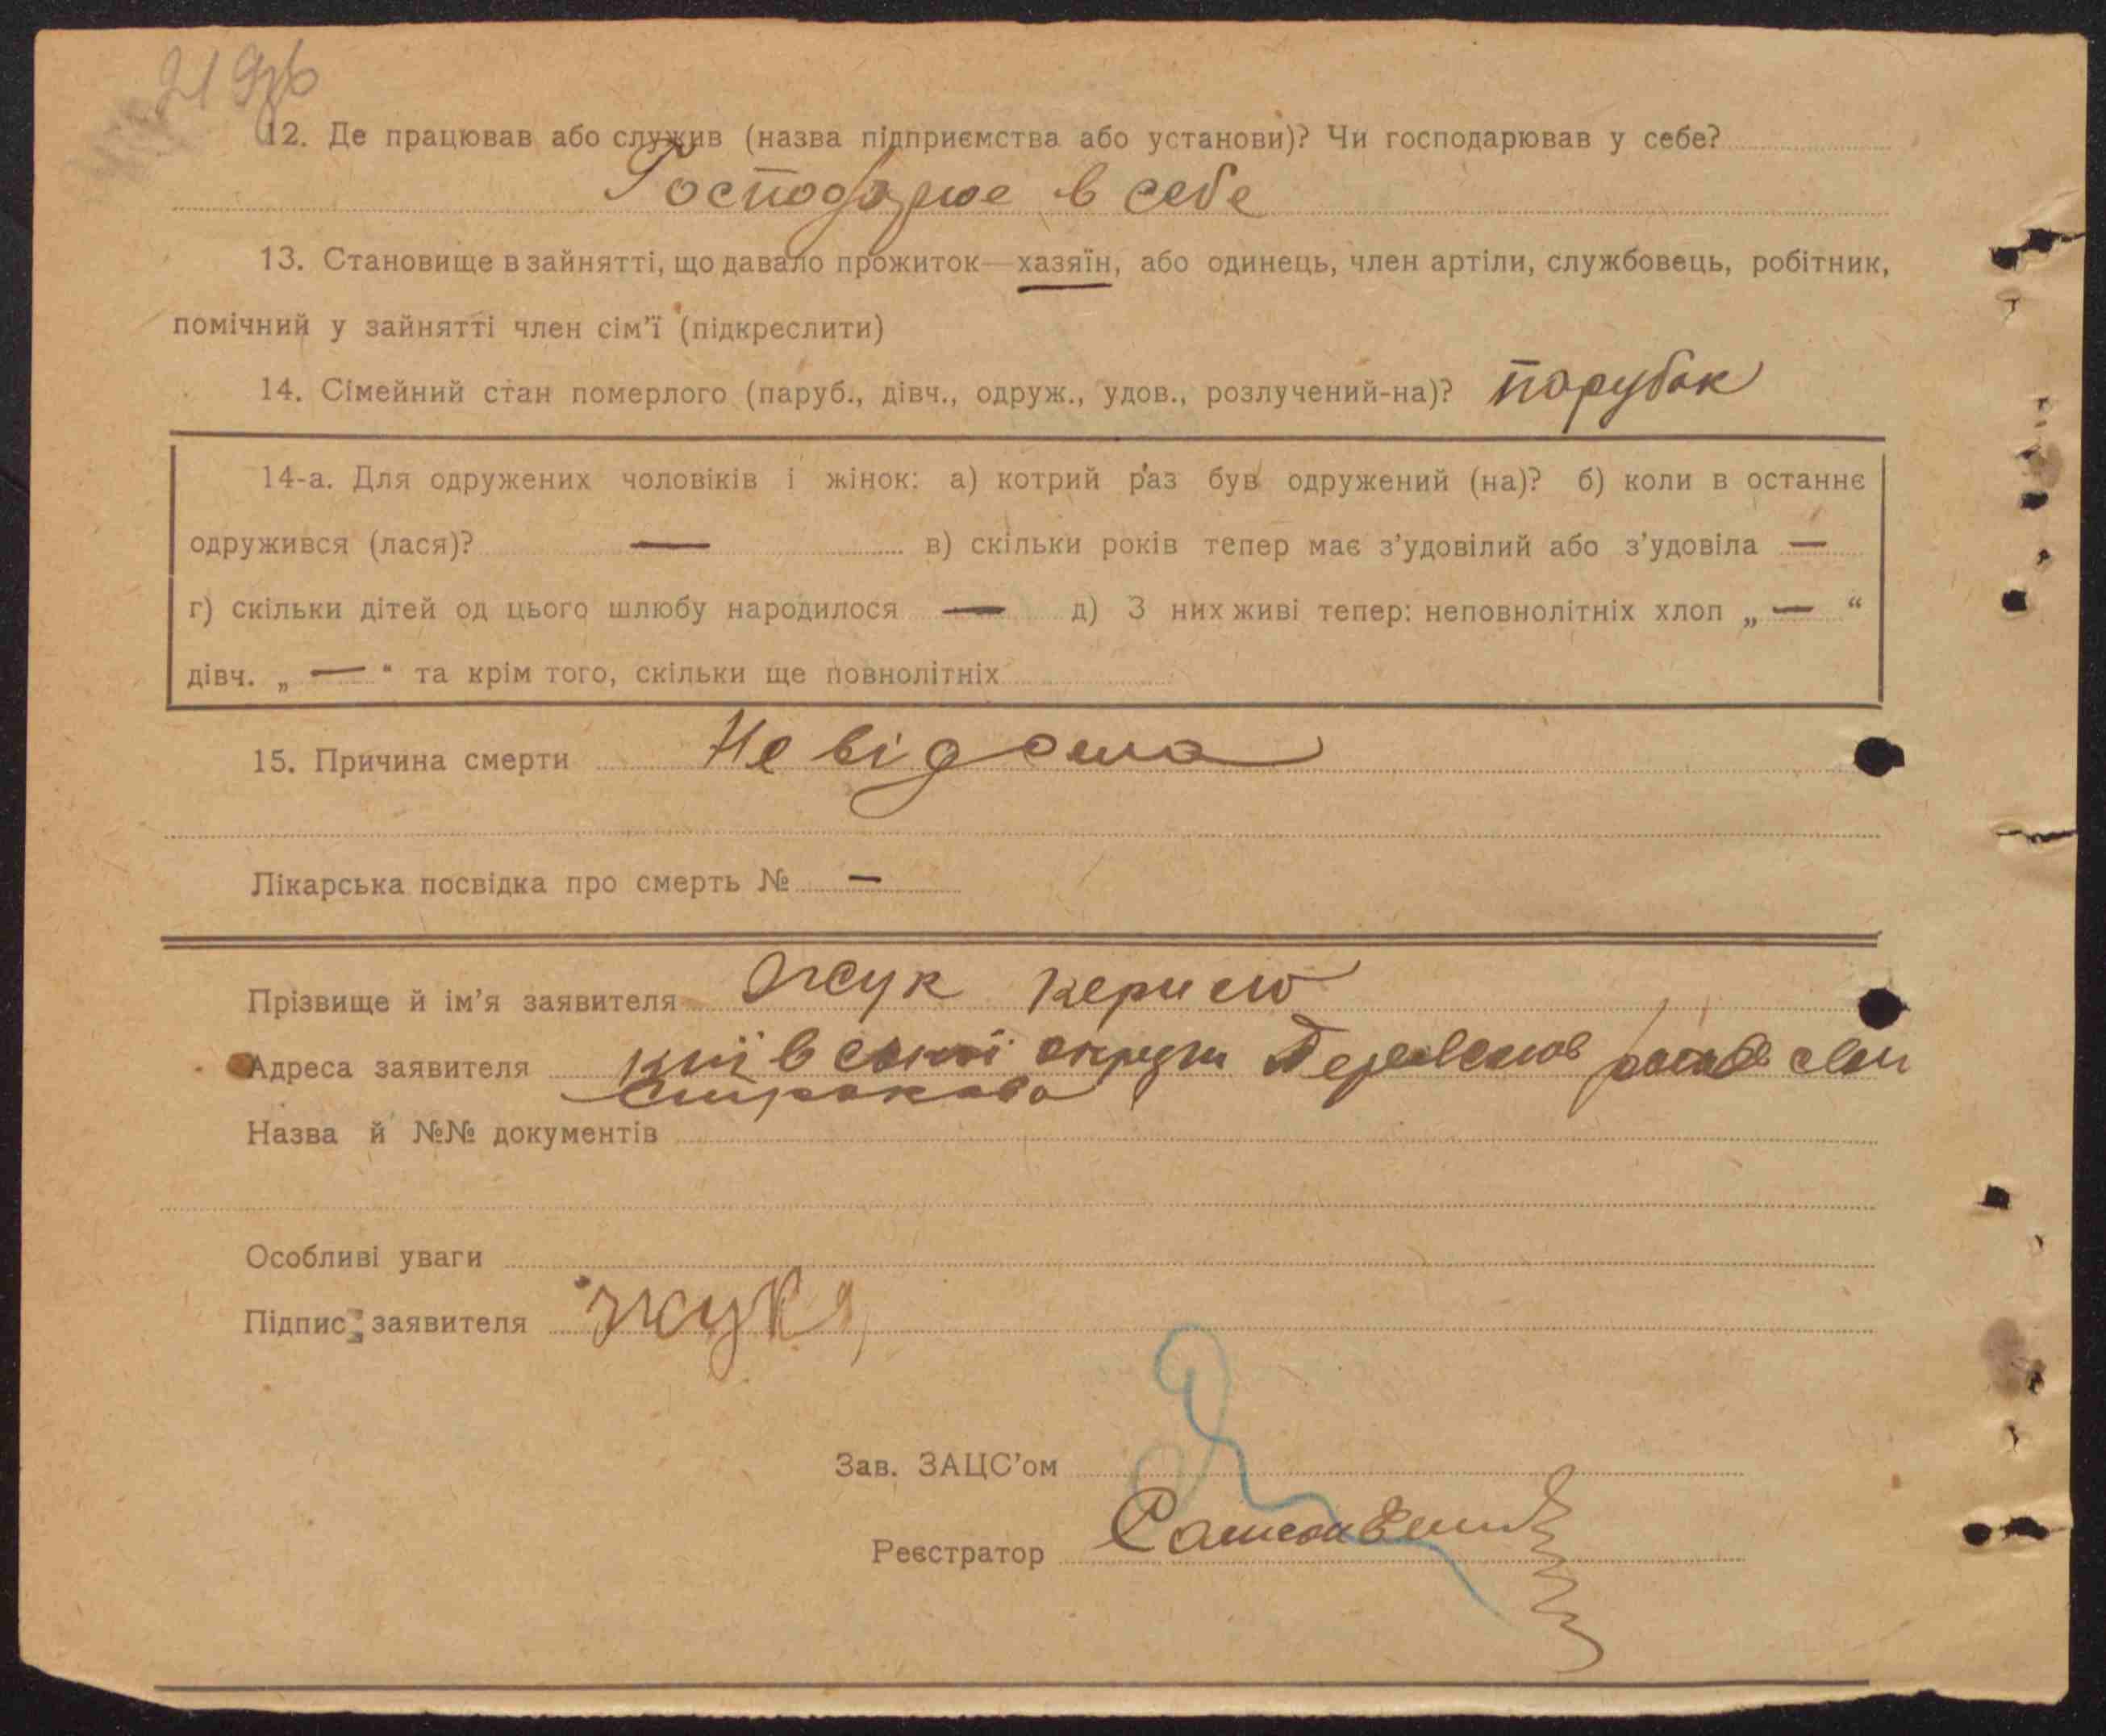 12. Де працював або служив (назва підприємства або установи)? Чи господарював у себе?
Господарює в себе
13. Становище в зайнятті, що давало прожиток—хазяїн, або одинець, член артіли, службовець, робітник,
помічний у зайнятті член сім'ї (підкреслити)
14. Сімейний стан померлого (паруб., дівч., одруж., удов., розлучений-на)? парубок
14-а. Для одружених чоловіків і жінок: а) котрий раз був одружений (на)? б) коли в останнє
одружився (лася)? — в) скільки років тепер має з'удовілий або з'удовіла —
г) скільки дітей од цього шлюбу народилося — д) З них живі тепер: неповнолітніх хлоп „ — “
дівч. „ — “ та крім того, скільки ще повнолітніх
15. Причина смерти Не відома
Лікарська посвідка про смерть № —
Прізвище й ім'я заявителя Жук
Адреса заявителя київської округи
Назва й №№ документів
Особливі уваги
Підпис заявителя Жук
Зав. ЗАЦС'ом
Реєстратор